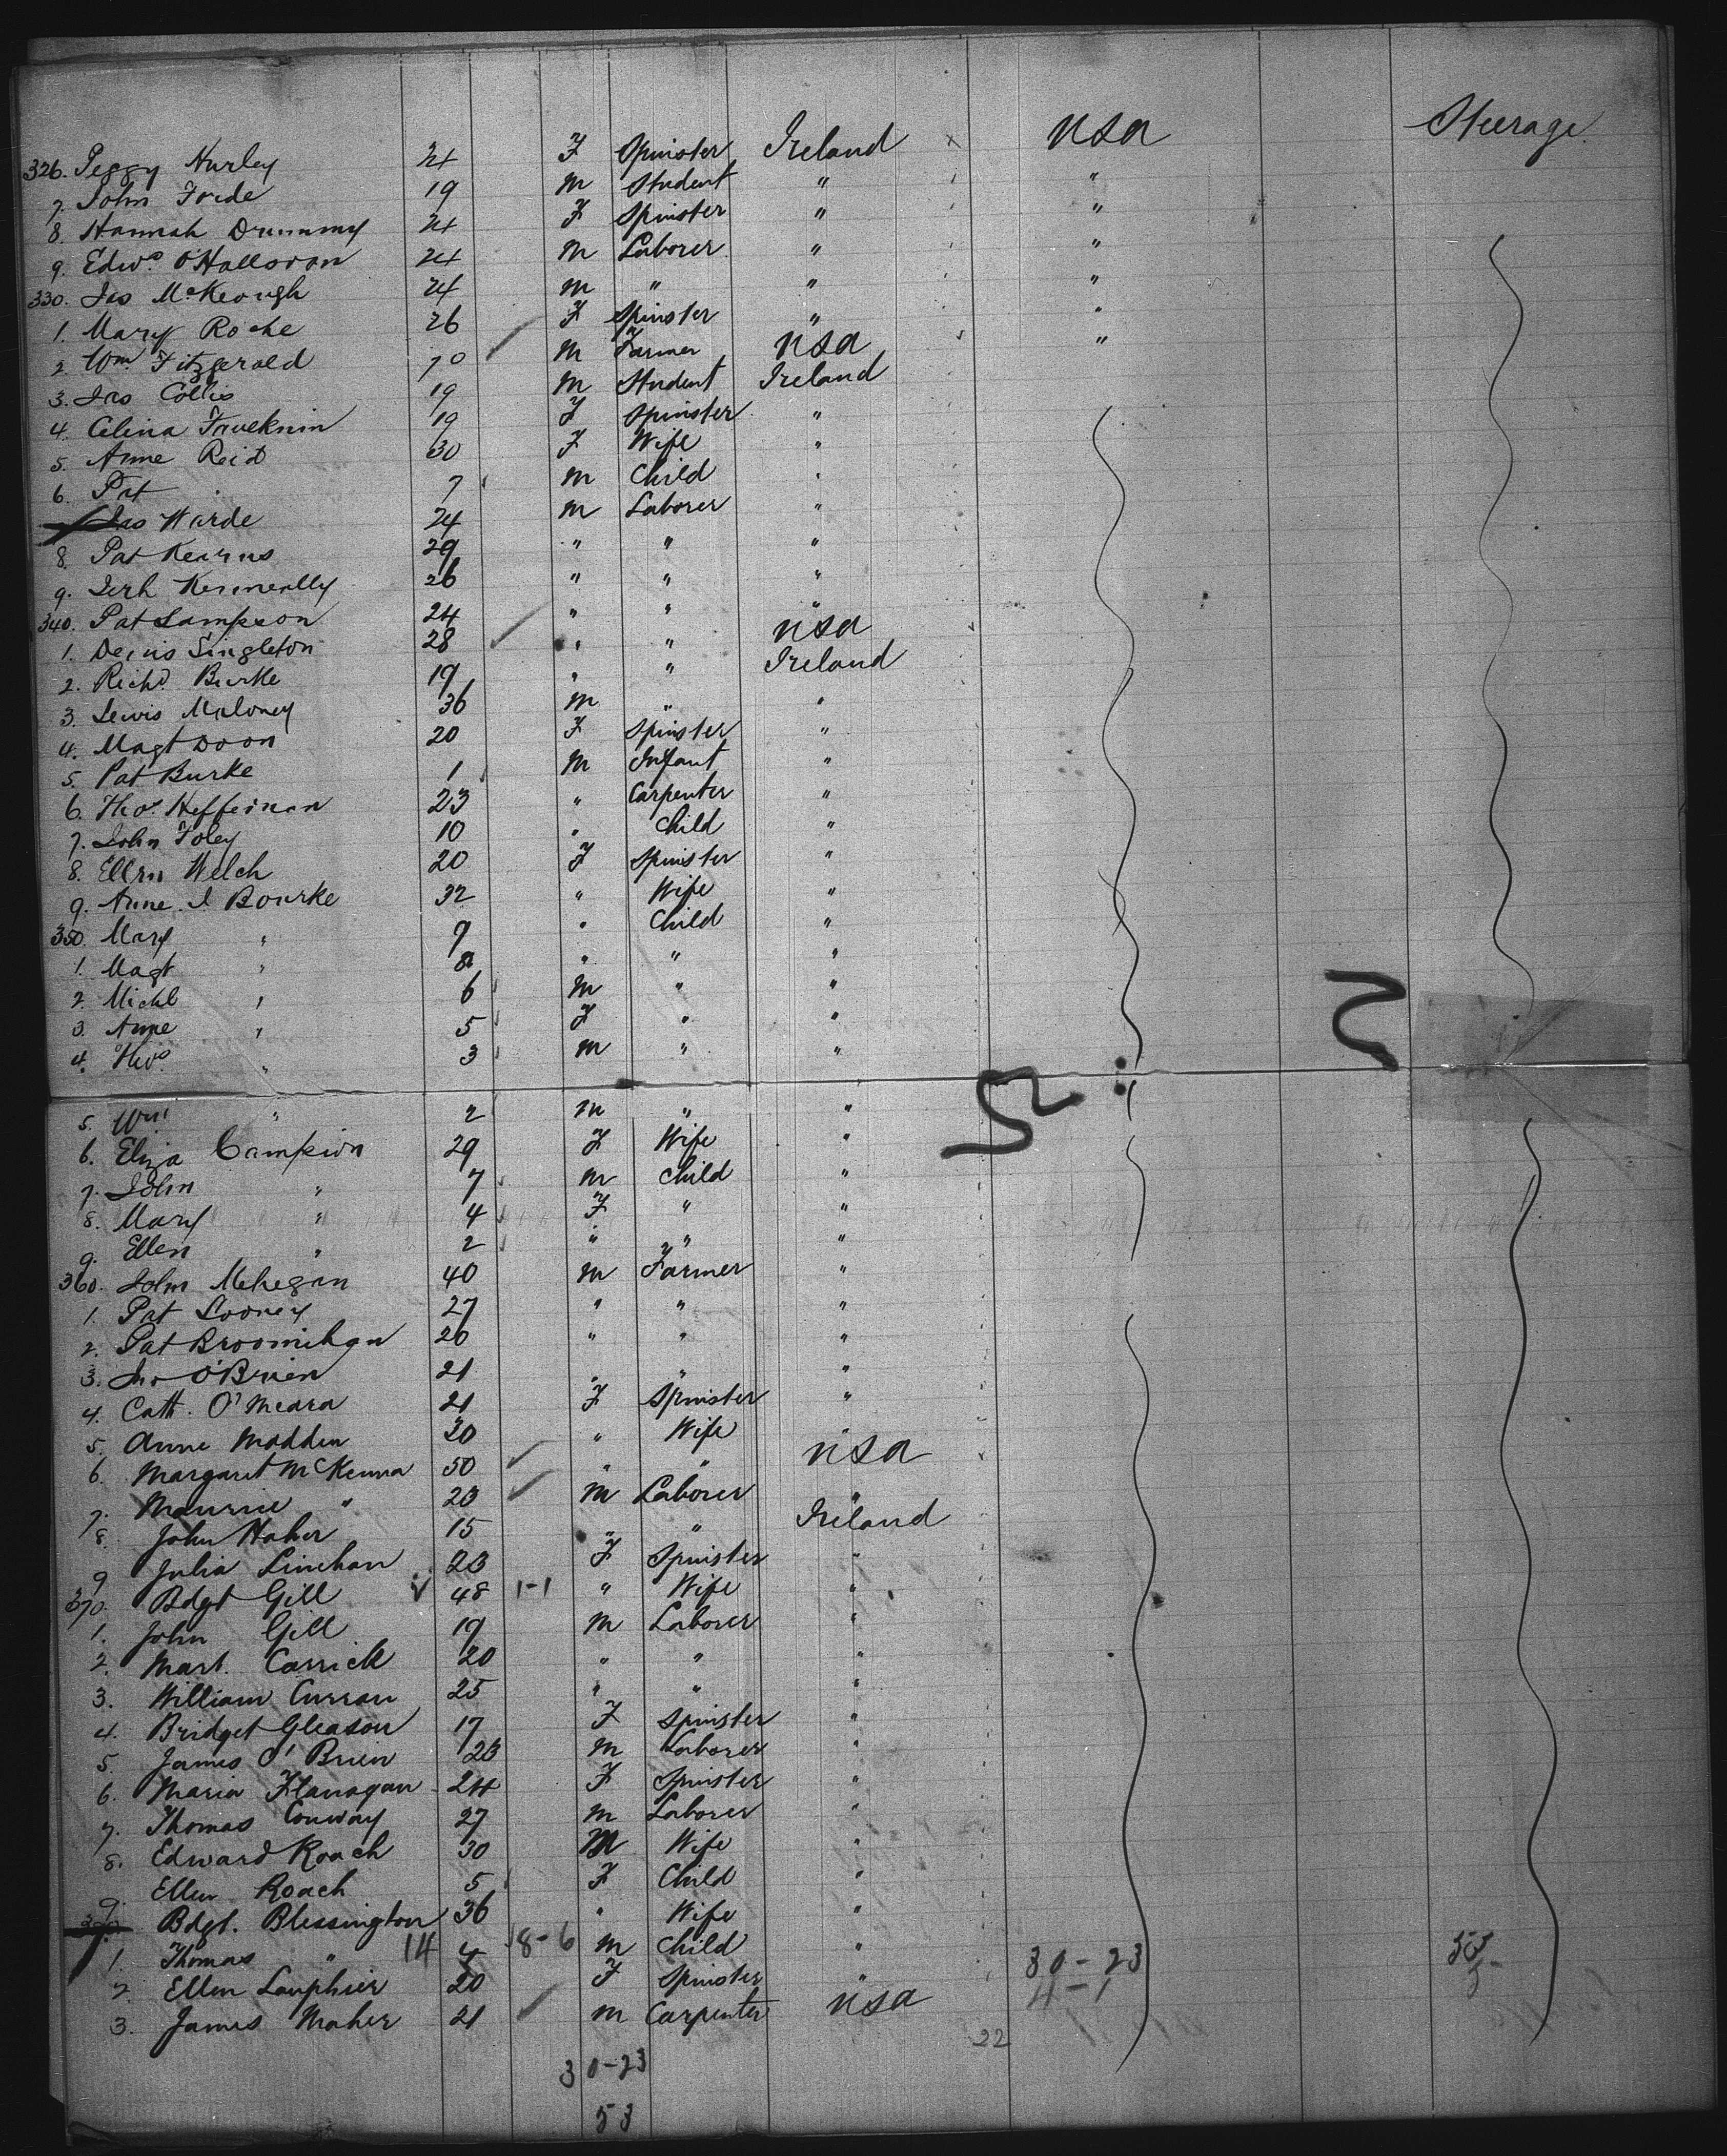 326. Peggy Hurley 24 F Spinster Ireland USA Steerage
7. John Forde 19 M Student " "
8. Hannah Drummy 24 F Spinster " "
9. Edwd. O'Halloran 24 M Laborer " "
330. Jas McKeough 24 M " " "
1. Mary Roche 26 F Spinster " "
2. Wm. Fitzgerald 70 M Farmer USA "
3. Jas Collis 19 M Student Ireland
4. Celina 19 F Spinster "
5. Anne Reid 30 F Wife "
6. Pat " 7 M Child "
Jas Warde 24 M Laborer "
8. Pat Kearns 29 " " "
9. Jerh Kenneally 26 " " "
340. Pat Lampson 24 " " "
1. Denis Singleton 28 " " USA
2. Richd. Burke 19 " " Ireland
3. Lewis Maloney 36 M " "
4. Magt Doon 20 F Spinster "
5. Pat Burke 1 M Infant "
6. Thos. Heffernan 23 " Carpenter "
7. John Foley 10 " Child "
8. Ellen Welch 20 F Spinster "
9. Anne J. Bourke 32 " Wife "
350. Mary " 9 " Child "
1. Magt " 8 " " "
2. Michl " 6 M " "
3. Anne " 5 F " "
4. Thos. " 3 M " "
5. Wm. " 2 M " "
6. Eliza Campion 29 F Wife "
7. John " 7 M Child "
8. Mary " 4 F " "
9. Ellen " 2 " " "
360. John Mehegan 40 M Farmer "
1. Pat Looney 27 " " "
2. Pat Broomihan 26 " " "
3. Jno O'Brien 21 " " "
4. Cath. O'Meara 21 F Spinster "
5. Anne Madden 30 " Wife "
6. Margaret McKenna 50 " " USA
7. Maurice " 23 M Laborer "
8. John Maher 15 " " Ireland
9 Julia Linehan 23 F Spinster "
370. Bdgt Gill 48 1-1 " Wife "
1. John Gill 19 M Laborer "
2. Mart. Carrick 20 " " "
3. William Curran 25 " " "
4. Bridget Gleason 17 F Spinster "
5. James O'Brien 23 M Laborer "
6. Maria Flanagan 24 F Spinster "
7. Thomas Conway 27 M Laborer "
8. Edward Roach 30 M Wife "
9. Ellen Roach 5 F Child "
Bdgt. Blessington 36 " Wife "
1. Thomas " 14 4 8-6 M Child " 30-23
2. Ellen Lanphier 20 F Spinster " 4-1
3. James Maher 21 M Carpenter USA
22
30-23
53